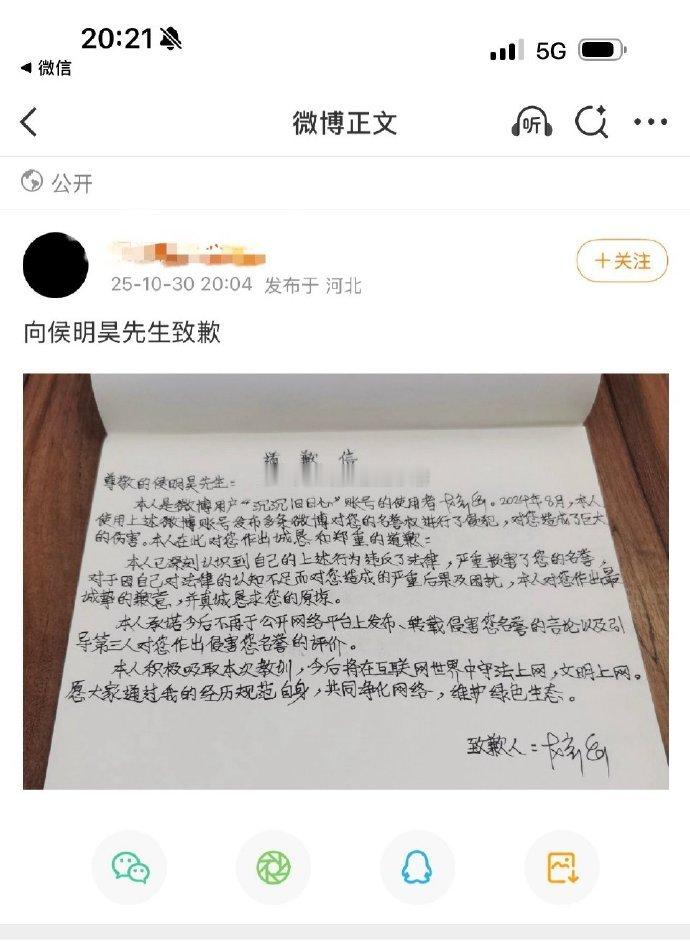 20:21
5G
微信
微博正文
听
公开
25-10-30 20:04 发布于 河北
+关注
向侯明昊先生致歉
道歉信
尊敬的侯明昊先生：
本人是微博用户“沉沉旧日山”账号的使用者。2024年8月，本人
使用上述微博账号发布多条微博对您的名誉权进行了侵犯，对您造成了巨大
的伤害。本人在此对您作出诚恳和郑重的道歉：
本人已深刻认识到自己的上述行为违反了法律，严重损害了您的名誉，
对于因自己对法律的认知不足而对您造成的严重后果及困扰，本人对您作出最
诚挚的歉意，并真诚恳求您的原谅。
本人承诺今后不再于公开网络平台上发布、转载侵害您名誉的言论以及引
导第三人对您作出侵害您名誉的评价。
本人积极吸取本次教训，今后将在互联网世界中守法上网，文明上网。
愿大家通过我的经历规范自身，共同净化网络，维护绿色生态。
致歉人：